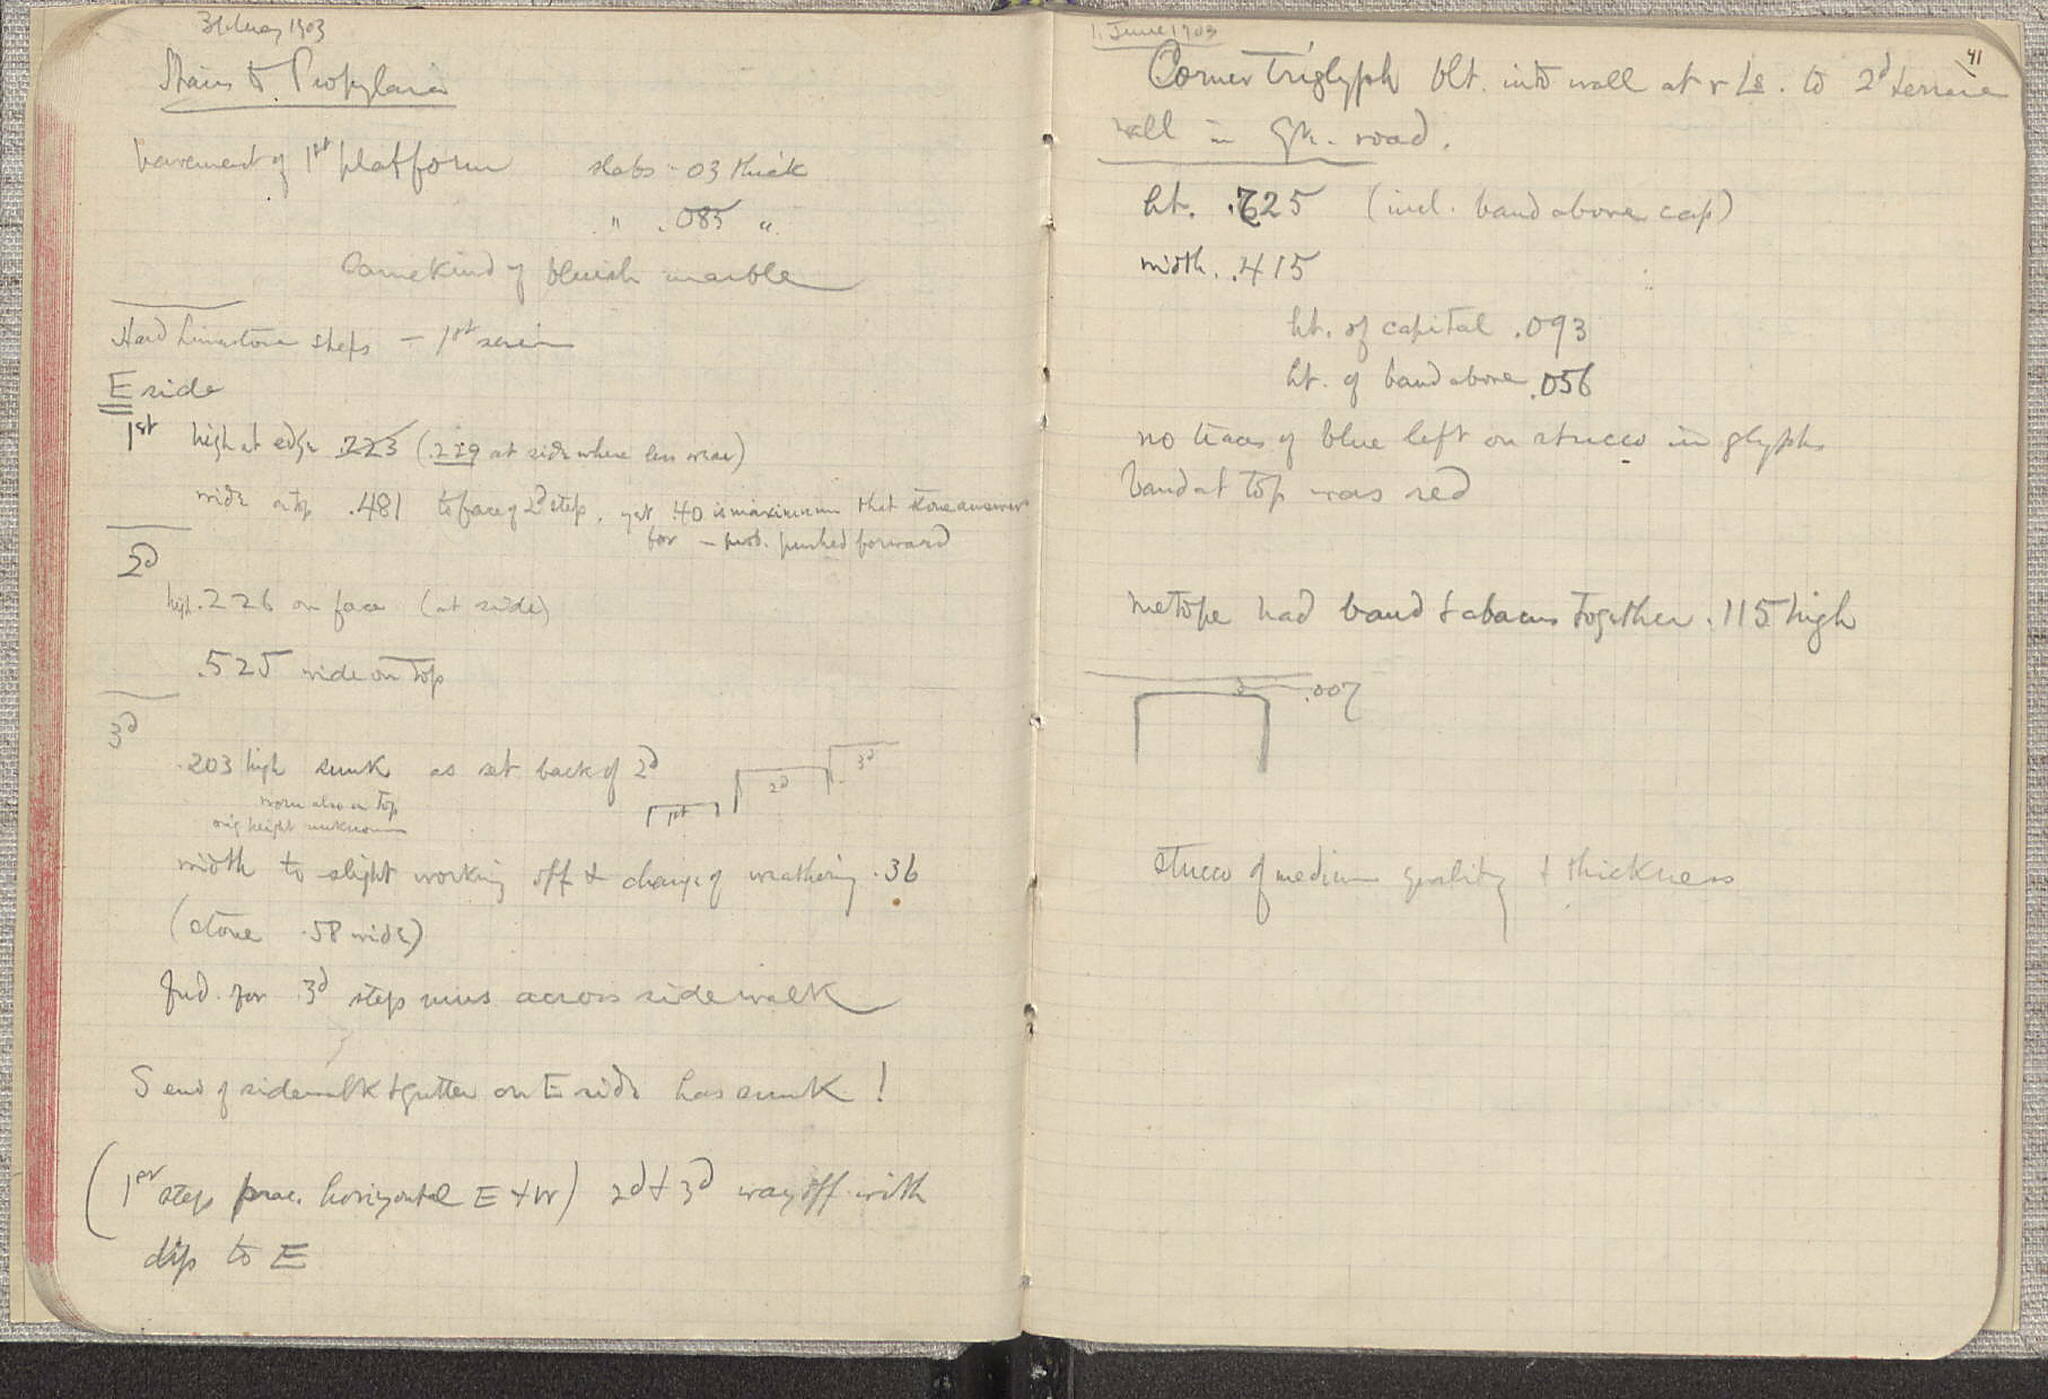 31 May 1903
Stairs to Propylaea
Pavement of 1st platform slabs .03 thick
" .085 "
Same kind of bluish marble
Hard limestone steps – 1st series
E side
1st high at edge .223 (.229 at side where less wear)
wide on top .481 to face of 2d step, yet .40 is maximum that stone answers
for – prob. pushed forward
2d
high .226 on face (at side)
.525 wide on top
3d
.203 high sunk as set back of 2d
worn also on top
orig height unknown
1st 2d 3d
width to slight working off & change of weathering .36
(stone .58 wide)
fnd. for 3d step runs across sidewalk
S end of sidewalk & gutter on E side has sunk!
(1st step prac. horizontal E & W) 2d & 3d way off with
dip to E
1. June 1903
41
Corner triglyph blt. into wall at r to 2d terrace
wall in Gk. road.
ht. .625 (incl. band above cap)
width. .415
ht. of capital .093
ht. of band above .056
no traces of blue left on stucco in glyphs
band at top was red
metope had band & abacus together .115 high
.007
stucco of medium quality & thickness